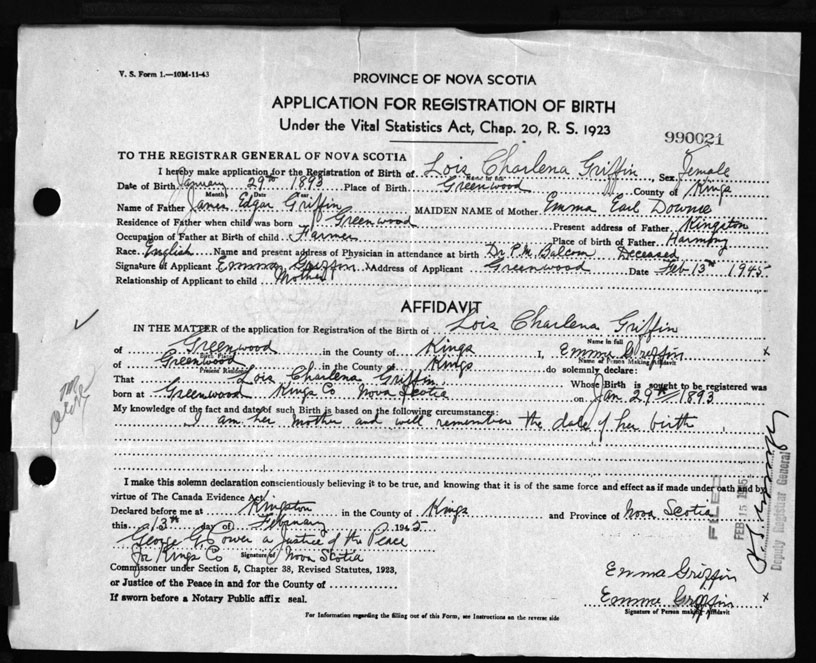 V. S. Form 1.—10M-11-43
PROVINCE OF NOVA SCOTIA
APPLICATION FOR REGISTRATION OF BIRTH
Under the Vital Statistics Act, Chap. 20, R. S. 1923
990021
TO THE REGISTRAR GENERAL OF NOVA SCOTIA
I hereby make application for the Registration of Birth of Lois Charlena Griffin, Sex Female
Name in full
Date of Birth January 29th 1893 Place of Birth Greenwood County of Kings
Month Date Year
Name of Father James Edgar Griffin MAIDEN NAME of Mother Emma Earl Downie
Residence of Father when child was born Greenwood Present address of Father Kingston
Occupation of Father at Birth of child Farmer Place of birth of Father Harmony
Race English Name and present address of Physician in attendance at birth Dr P.M. Balcom Deceased
Signature of Applicant Emma Griffin Address of Applicant Greenwood Date Feb 13th 1945
Relationship of Applicant to child Mother
AFFIDAVIT
IN THE MATTER of the application for Registration of the Birth of Lois Charlena Griffin
Name in full
of Greenwood in the County of Kings I, Emma Griffin x
Birth Place Name of Person Making Affidavit
of Greenwood in the County of Kings do solemnly declare:
Present Residence
That Lois Charlena Griffin Whose Birth is sought to be registered was
born at Greenwood Kings Co Nova Scotia on Jan 29th 1893
My knowledge of the fact and date of such Birth is based on the following circumstances:
I am her mother and will remember the date of her birth
I make this solemn declaration conscientiously believing it to be true, and knowing that it is of the same force and effect as if made under oath and by
virtue of The Canada Evidence Act
Declared before me at Kingston in the County of Kings and Province of Nova Scotia
this 13th day of February 1945
George G. Power a Justice of the Peace
for Kings Co Nova Scotia
Signature of
Commissoner under Section 5, Chapter 38, Revised Statutes, 1923,
or Justice of the Peace in and for the County of
If sworn before a Notary Public affix seal.
Emma Griffin
Emma Griffin x
Signature of Person making Affidavit
For Information regarding the filling out of this Form, see Instructions on the reverse side
FILED
FEB 15
Deputy Registrar General